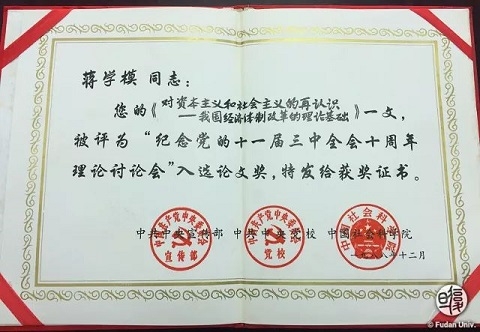 蒋学模 同志：
您的《对资本主义和社会主义的再认识
——我国经济体制改革的理论基础》一文，
被评为“纪念党的十一届三中全会十周年
理论讨论会”入选论文奖，特发给获奖证书。
中共中央宣传部 中共中央党校 中国社会科学院
中国共产党中央委员会
宣传部
中国共产党中央委员会
党校
中国社会科学院
一九八八年十二月
© Fudan Univ.